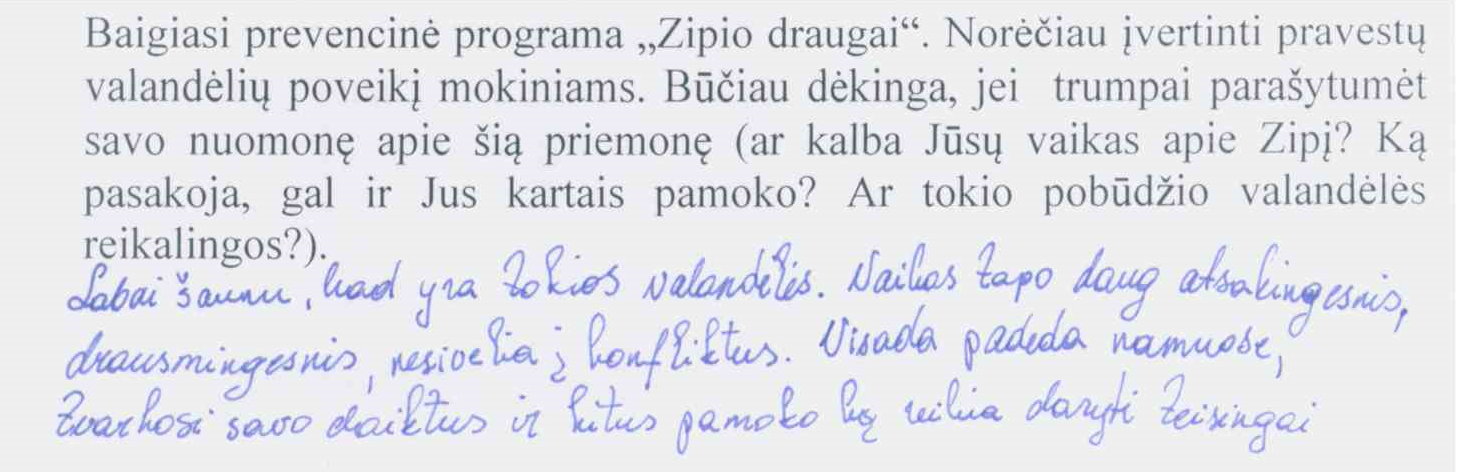 Baigiasi prevencinė programa „Zipio draugai“. Norėčiau įvertinti pravestų
valandėlių poveikį mokiniams. Būčiau dėkinga, jei trumpai parašytumėt
savo nuomonę apie šią priemonę (ar kalba Jūsų vaikas apie Zipį? Ką
pasakoja, gal ir Jus kartais pamoko? Ar tokio pobūdžio valandėlės
reikalingos?).
Labai šaunu, kad yra tokios valandėlės. Vaikas tapo daug atsakingesnis,
drausmingesnis, nesivelia į konfliktus. Visada padeda namuose,
tvarkosi savo daiktus ir kitus pamoko ką reikia daryti teisingai